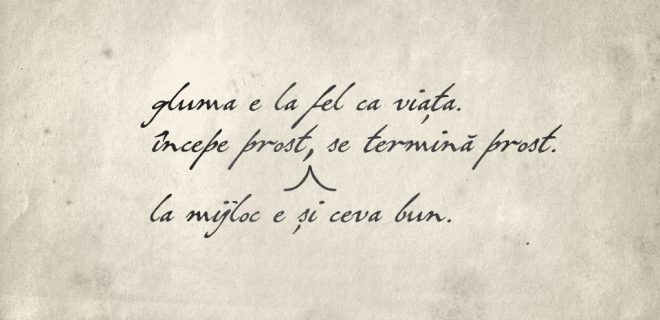 gluma e la fel ca viața.
începe prost, se termină prost.
la mijloc e și ceva bun.